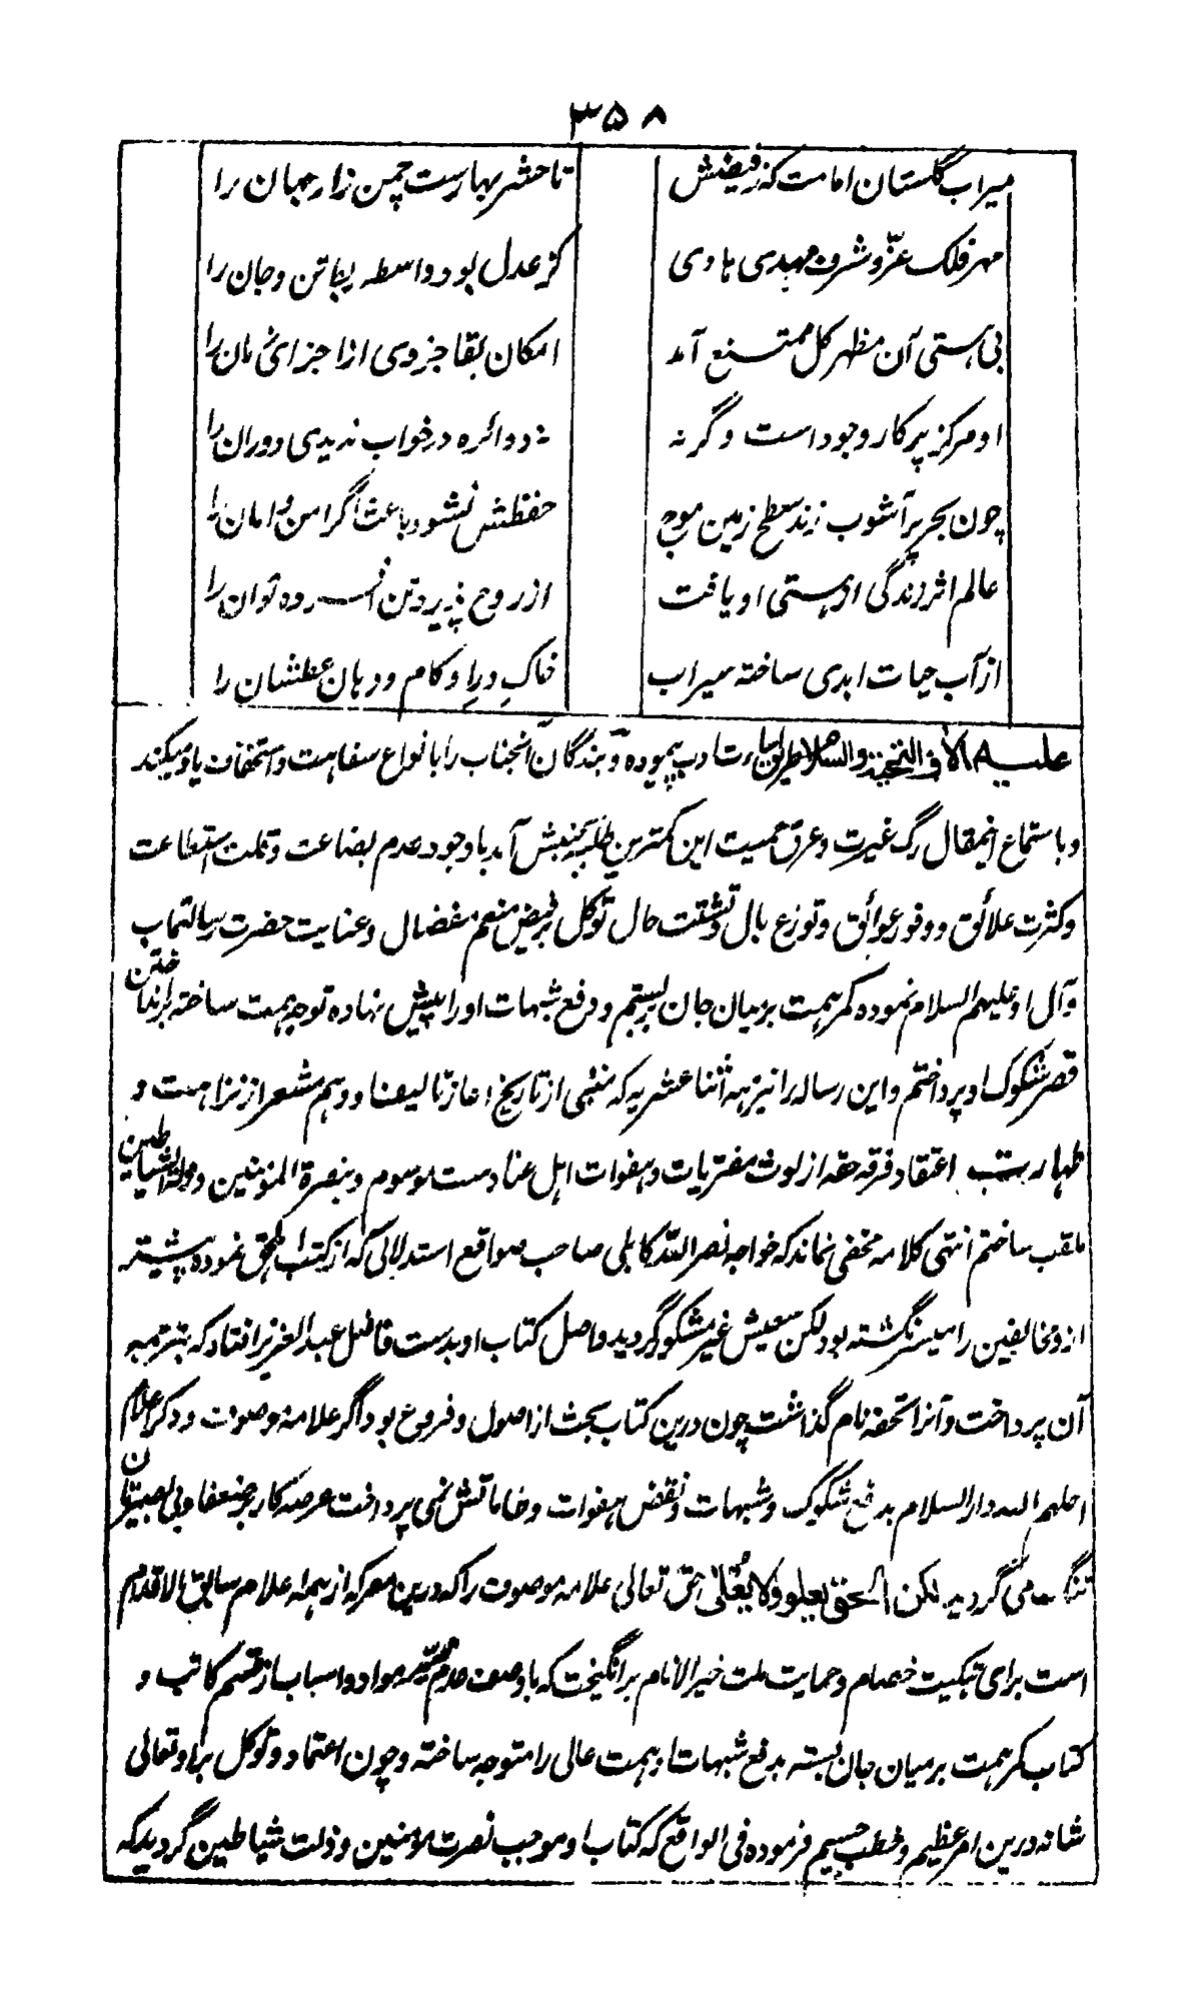 ۳۵۸
میراب گلستان امامت که ز فیضش تا حشر بهارست چمن زار جهان را
مهر فلک عزّ و شرف مهدی هادی کز عدل بود واسطه پیدا تن و جان را
بی هستی آن مظهر کل ممتنع آمد امکان بقا جزوی از اجزائ مان را
او مرکز پرکار وجود است و گرنه نه دائره در خواب ندیدی دوران را
چون بحر پر آشوب زند سطح زمین موج حفظش نشود باعث اگر امن و امان را
عالم اثر زندگی از هستی او یافت از روح پذیرد تن افسرده توان را
از آب حیات ابدی ساخته سیراب خاک در او کام و دهان عطشان را
علیه آلاف التحیة والسلام طریق اساءت ادب پیموده و بندگان آنجناب را بانواع سفاهت و استخفاف یاد میکند
و باستماع اینمقال رگ غیرت و عرق حمیت این کمترین طلبه بجنبش آمد باوجود عدم بضاعت و قلت استطاعت
و کثرت علائق و وفور عوائق و توزع بال و تشتت حال توکل بر فیض منعم مفضال و عنایت حضرت رسالتمآب
و آل او علیهم السلام نموده کمر همت بر میان جان بستم و دفع شبهات او را پیش نهاده توجه همت ساخته برانداختن
قصر شکوک او پرداختم و این رساله را نزهه اثنا عشریه که منبئی از تاریخ اغاز تالیفنا و و هم مشعر از نزاهت و
طهارت اعتقاد فرقه حقه از لوث مفتریات و هفوات اهل عنادست موسوم و بنصرة المؤمنین و مذلة الشیاطین
ملقب ساختم انتهی کلامه مخفی نماند که خواجه نصر الله کابلی صاحب صواقع استدلالی که از کتب اهل حق نموده پیشتر
از و مخالفین را میسر نگشته بود لکن سعیش غیر مشکور گردید و اصل کتاب او بدست فاضل عبد العزیز افتاد که بترجمه
آن پرداخت و آنرا تحفه نام گذاشت چون درین کتاب بحث از اصول و فروع بود اگر علامه موصوف و دیگر اعلام
احلهم الله دار السلام بدفع شکوک و شبهات و نقض هفوات و خافاتش نمی پرداخت عرصه کار بر ضعفا و بی بصیرتان
تنگ می گردید لکن الحق یعلو ولا یعلی حق تعالی علامه موصوف را که درین معرکه از همه اعلام سابق الاقدام
است برای تبکیت خصام و حمایت ملت خیر الانام برانگیخت که باوصف عدم تیسر مواد و اسباب از قسم کاتب و
کتاب کمر همت بر میان جان بسته بدفع شبهات او همت عالی را متوجه ساخته و چون اعتماد و توکل بر او تعالی
شانه درین امر عظیم و خطب جسیم فرموده فی الواقع که کتاب او موجب نصرت مؤمنین و ذلت شیاطین گردید که